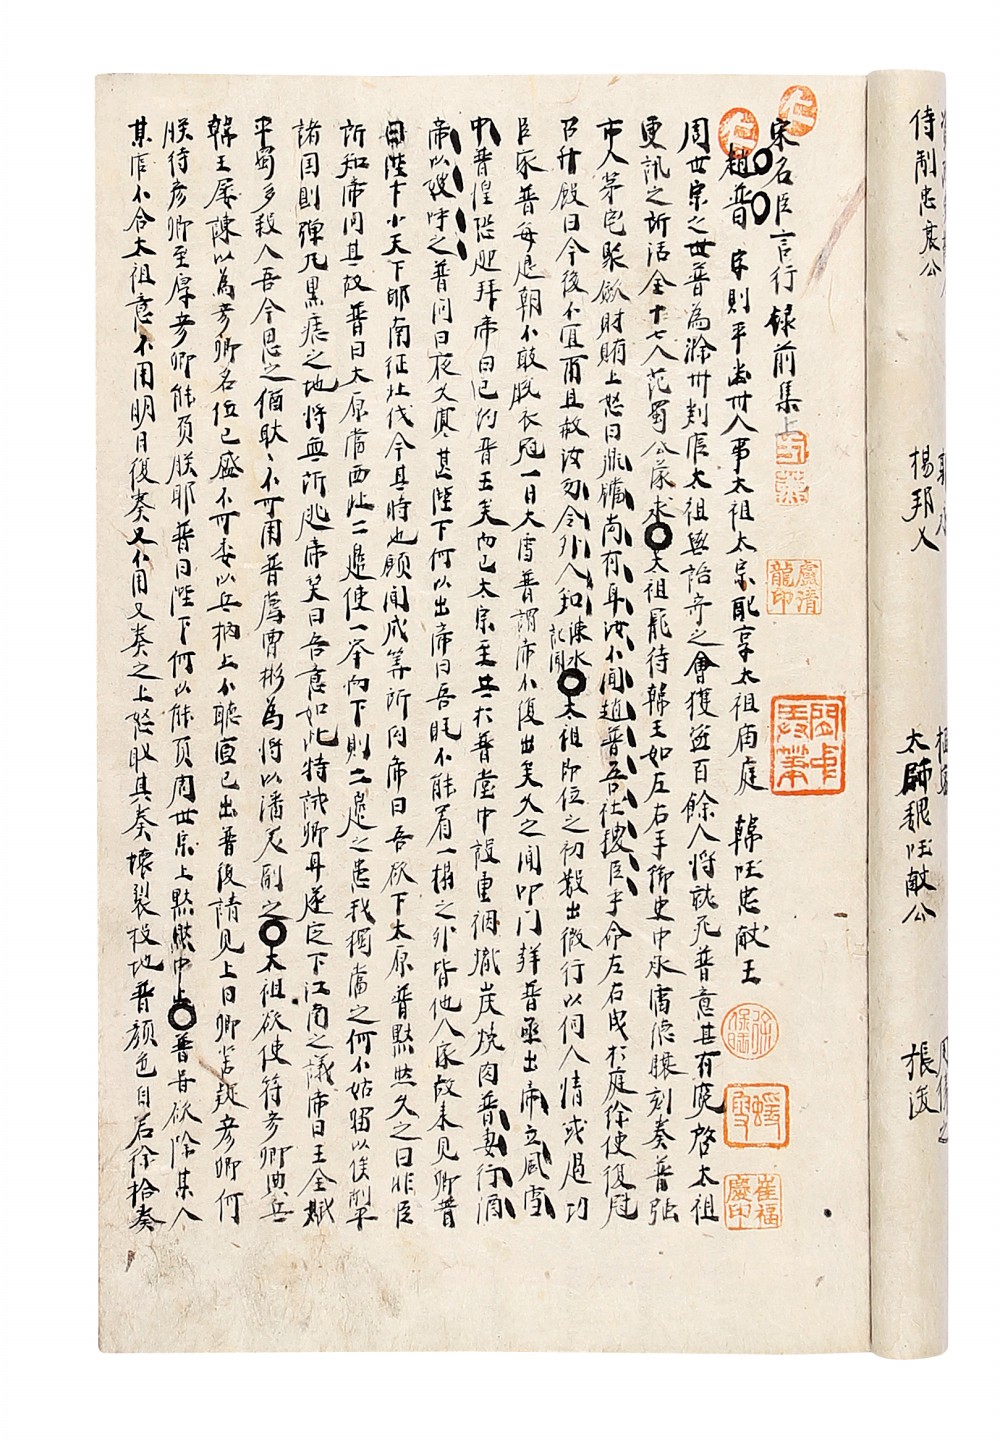 侍制忠襄公
楊邦乂
太師魏旺敵公
張浚
宋名臣言行録前集上
趙普 字則平 人事太祖太宗配享太祖庙庭 韓王忠献王
周世宗之世普為滁州判官太祖與語竒之會獲盗百餘人將就死普意其有寃啓太祖
更訊之所活全十七八范蜀公蒙求太祖寵待韓王如左右手御史中丞雷德驤刻奏普强
市人苐宅聚歛財賄上怒曰鼎鐺尚有耳汝不聞趙普吾社稷臣乎命左右曳於庭徐使復冠
召升殿曰今後不宜爾且赦汝勿令外人知涑水記聞太祖即位之初数出微行以伺人情或過功
臣家普每退朝不敢脱衣冠一日大雪普謂帝不復出矣久之聞叩门聲普亟出帝立風雪
中普惶恐迎拜帝曰已約晋王矣而已太宗至共於普堂中設重裀熾炭燒肉普妻行酒
帝以嫂呼之普问曰夜久寒甚陛下何以出帝曰吾睡不能着一榻之外皆他人家故来見卿普
曰陛下小天下耶南征北伐今其時也願聞成筭所向帝曰吾欲下太原普黙然久之曰非臣
所知帝问其故普曰太原當西北二邉使一举而下則二邉之患我獨當之何不姑留以俟削平
諸国則弹丸黒痣之地將無所逃帝笑曰吾意如此特試卿耳遂定下江南之議帝曰王全斌
平蜀多殺人吾今思之猶耿〻不可用普薦曺彬為將以潘美副之太祖欲使符彦卿典兵
韓王屡諫以為彦卿名位已盛不可委以兵柄上不聽宣已出普復請見上曰卿苦疑彦卿何
朕待彦卿至厚彦卿能負朕耶普曰陛下何以能負周世宗上黙然中止普甞欲除某人
某官不合太祖意不用明日復奏又不用又奏之上怒取其奏壊裂投地普顔色自若徐拾奏
盧清龍印
崔福慶印